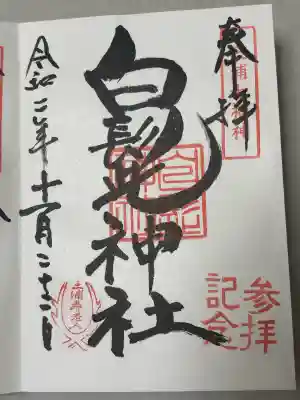 奉拝
白髭神社
令和二年十一月二十二日
参拝
記念